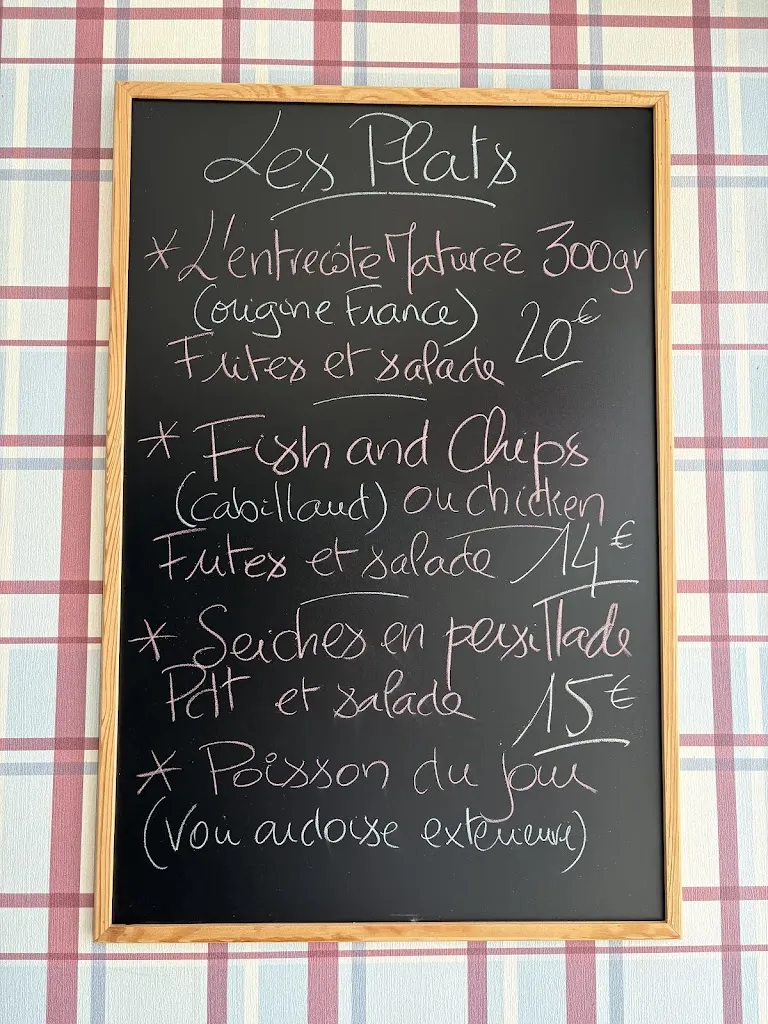 Les Plats
* L'entrecôte Maturée 300gr
(origine France) 20€
Frites et salade
* Fish and Chips
(cabillaud) ou chicken
Frites et salade 14€
* Seiches en persillade
Pdt et salade 15€
* Poisson du jour
(Voir ardoise extérieure)